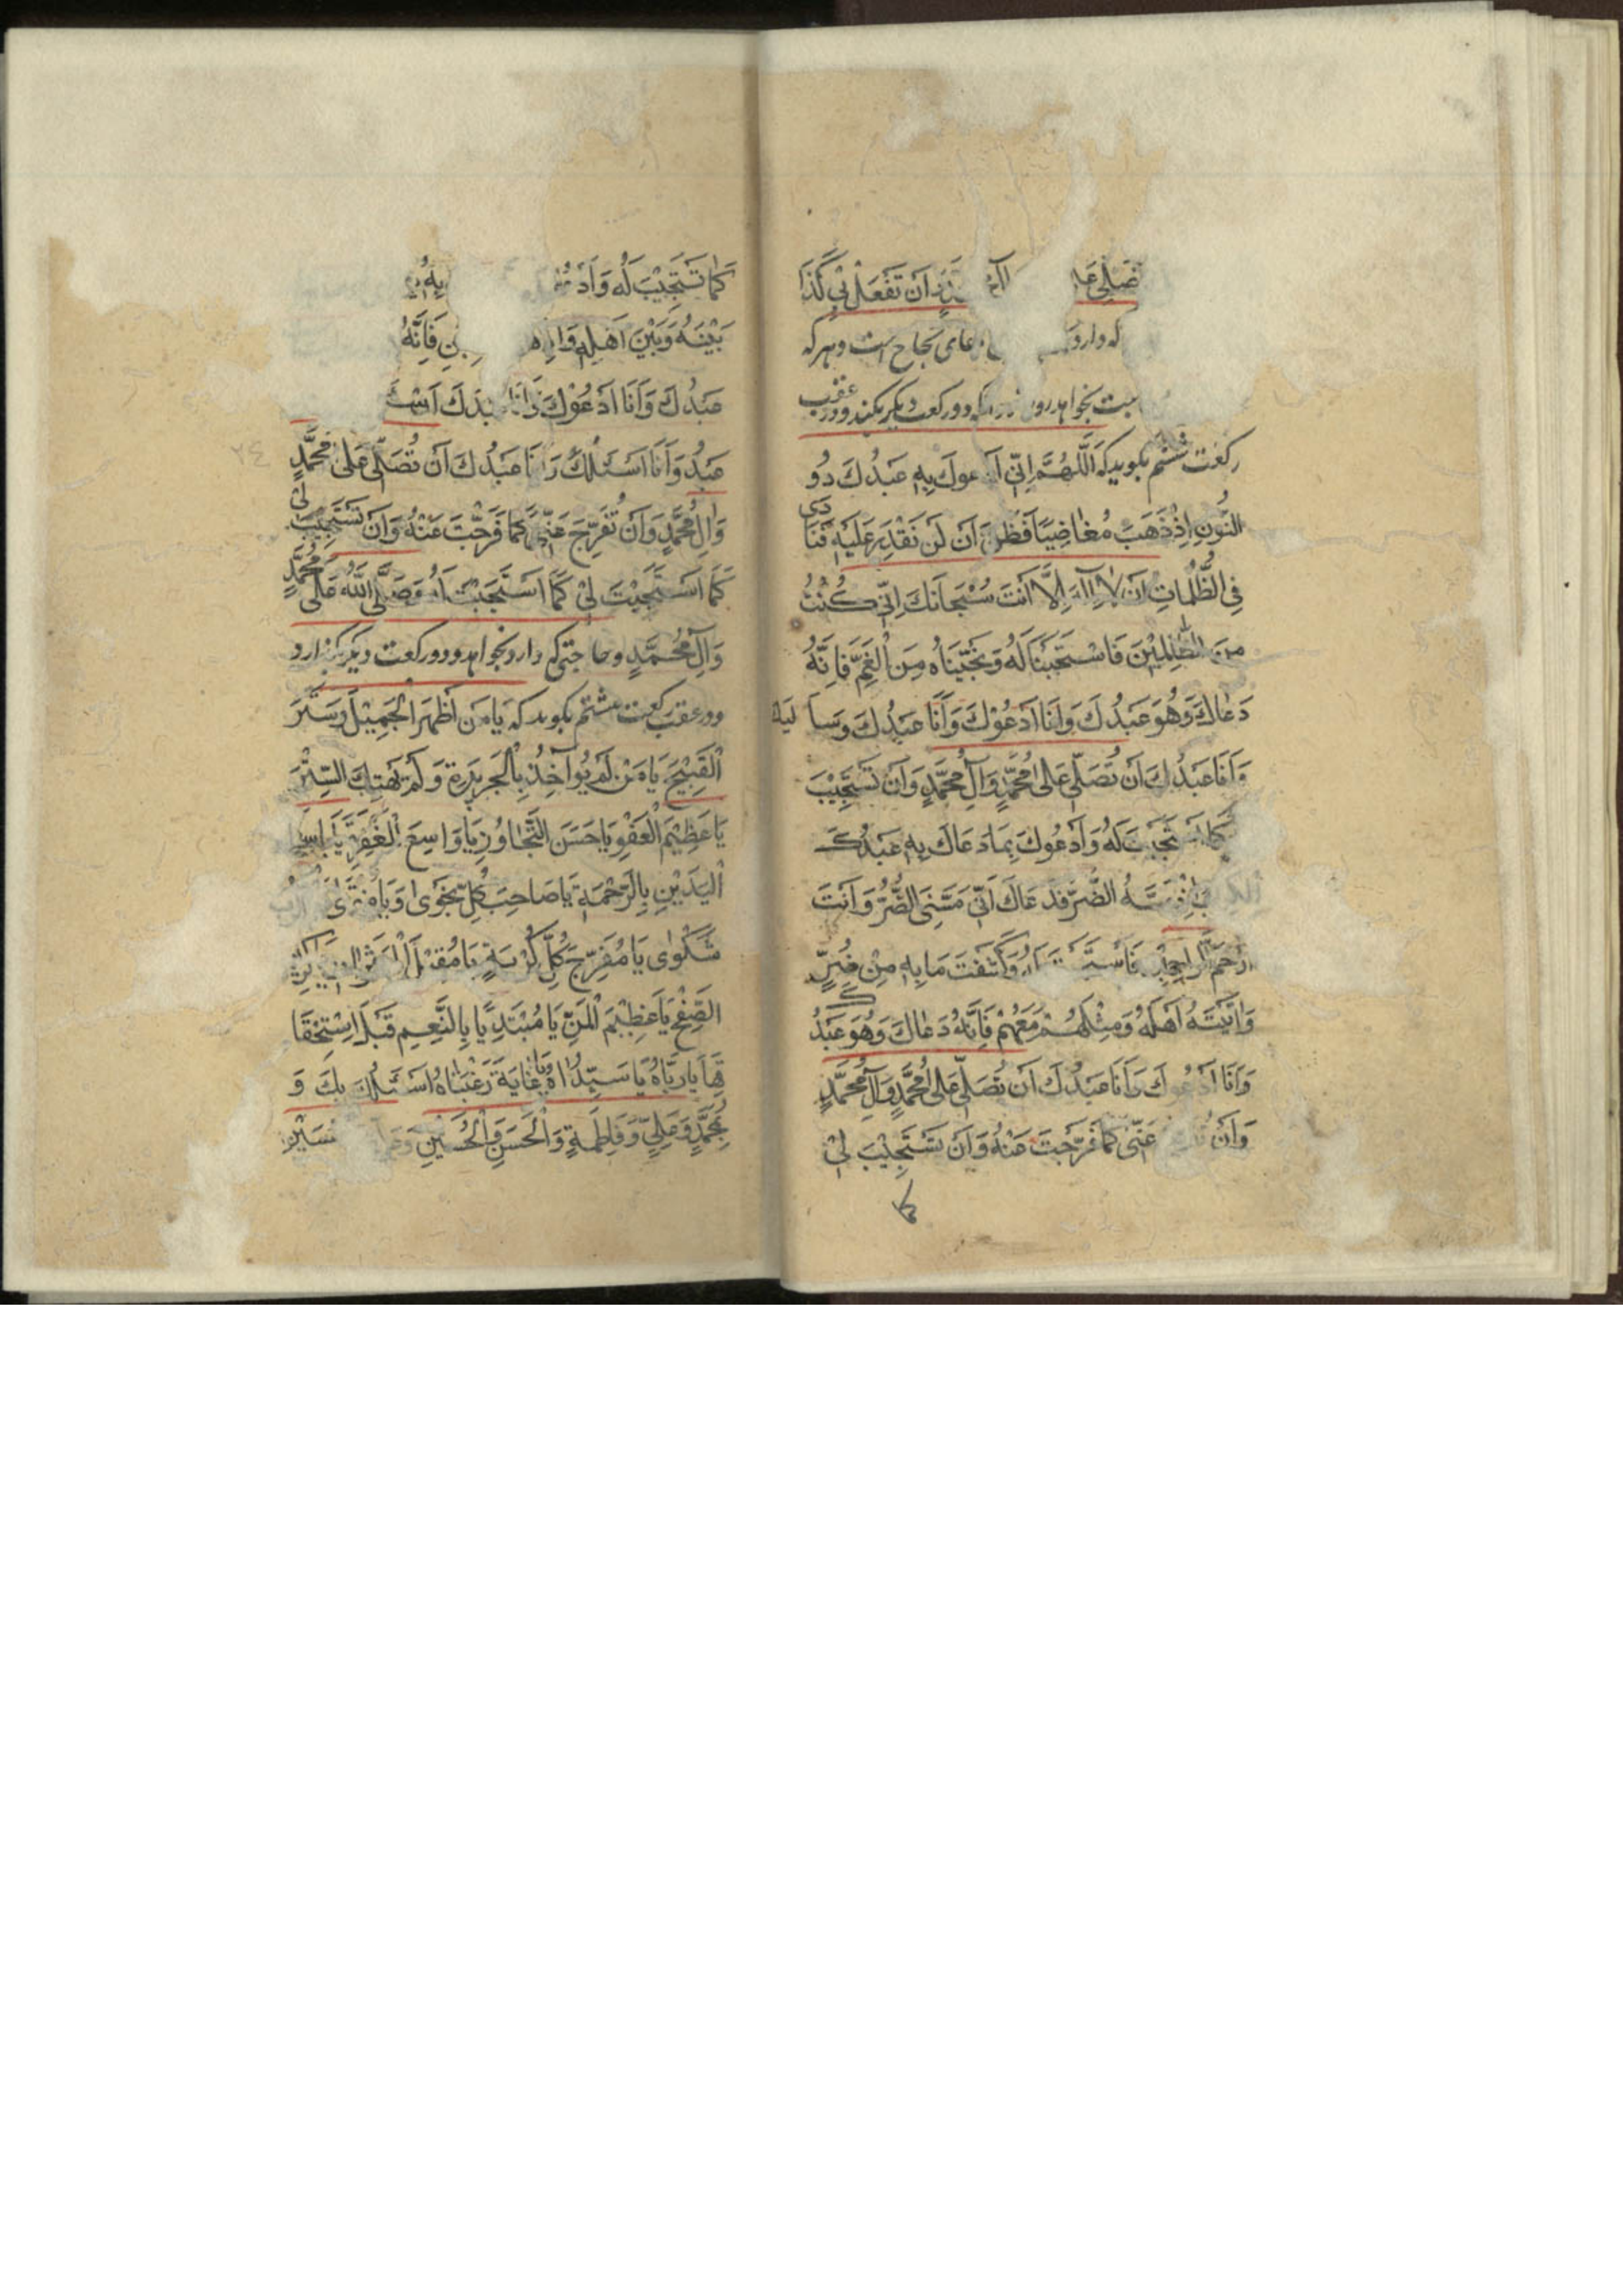 تُصَلِّیَ عَلٰی اَنْ تَفْعَلَ بِی کَذَا
که دارد دعای نجاح است و هر که
بخواهد دو رکعت دیگر بکند و در عقب
رکعت ششم بکوید که اَللّٰهُمَّ اِنِّی اَدْعوكَ بِهِ عَبْدُكَ ذُو
النُّونِ اِذْ ذَهَبَ مُغَاضِبًا فَظَنَّ اَنْ لَنْ نَقْدِرَ عَلَیْهِ فَنَادٰی
فِی الظُّلُمَاتِ اَنْ لَا اِلٰهَ اِلَّا اَنْتَ سُبْحَانَكَ اِنِّی کُنْتُ
مِنَ الظَّالِمِیْنَ فَاسْتَجَبْنَا لَهُ وَنَجَّیْنَاهُ مِنَ الْغَمِّ فَاِنَّهُ
دَعَاكَ وَهُوَ عَبْدُكَ وَاَنَا اَدْعُوْكَ وَاَنَا عَبْدُكَ وَسَا لَیك
وَاَنَا عَبْدُكَ اَنْ تُصَلِّیَ عَلٰی مُحَمَّدٍ وَآلِ مُحَمَّدٍ وَاَنْ تَسْتَجِیْبَ
کَمَا اسْتَجَبْتَ لَهُ وَاَدْعُوكَ بِمَا دَعَاكَ بِهِ عَبْدُكَ
مَسَّهُ الضُّرُّ فَدَعَاكَ اَنِّی مَسَّنِیَ الضُّرُّ وَاَنْتَ
اَرْحَمُ الرَّاحِمِیْنَ فَاسْتَجَبْتَ لَهُ وَکَشَفْتَ مَا بِهِ مِنْ ضُرٍّ
وَآتَیْتَهُ اَهْلَهُ وَمِثْلَهُمْ مَعَهُمْ فَاِنَّهُ دَعَاكَ وَهُوَ عَبْدُكَ
وَاَنَا اَدْعُوكَ وَاَنَا عَبْدُكَ اَنْ تُصَلِّیَ عَلٰی مُحَمَّدٍ وَآلِ مُحَمَّدٍ
وَاَنْ عَنِّی کَمَا فَرَّجْتَ عَنْهُ وَاَنْ تَسْتَجِیْبَ لِیْ
کما
کَمَا تَسْتَجِیْبَ لَهُ وَاَدْ بِهِ
بَیْنَهُ وَبَیْنَ اَهْلِهِ فَاِنَّهُ
عَبْدُكَ وَاَنَا اَدْعُوْكَ وَاَنَا عَبْدُكَ
عَبْدُ وَاَنَا اَسْئَلُكَ وَاَنَا عَبْدُكَ اَنْ تُصَلِّیَ عَلٰی مُحَمَّدٍ
وَآلِ مُحَمَّدٍ وَاَنْ تُفَرِّجَ عَنِّی کَمَا فَرَّجْتَ عَنْهُ وَاَنْ تَسْتَجِیْبَ لِیْ
کَمَا اسْتَجَبْتَ لِیْ کَمَا اسْتَجَبْتَ لَهُ وَصَلَّی اللّٰهُ عَلٰی مُحَمَّدٍ
وَآلِ مُحَمَّدٍ وحاجتی که دارد بخواهد ودو رکعت دیکر بکزارد
ودر عقب رکعت هشتم بکوید که یَا مَنْ اَظْهَرَ الْجَمِیْلَ وَسَتَرَ
الْقَبِیْحَ یَا مَنْ لَمْ یُوَاخِذْ بِالْجَرِیْرَةِ وَلَمْ یَهْتِكِ السِّتْرَ
یَا عَظِیْمَ الْعَفْوِ یَا حَسَنَ التَّجَاوُزِ یَا وَاسِعَ الْمَغْفِرَةِ یَا بَاسِطَ
الْیَدَیْنِ بِالرَّحْمَةِ یَا صَاحِبَ کُلِّ نَجْوٰی وَیَا مُنْتَهٰی
شَکْوٰی یَا مُفَرِّجَ کُلِّ کُرْبَةٍ یَا مُقِیْلَ الْعَثَرَاتِ یَا کَرِیْمَ
الصَّفْحِ یَا عَظِیْمَ الْمَنِّ یَا مُبْتَدِیًا بِالنِّعَمِ قَبْلَ اسْتِحْقَا
قِهَا یَا رَبَّاهُ یَا سَیِّدَاهُ یَا غَایَةَ رَغْبَتَاهُ اَسْئَلُكَ بِكَ وَ
بِمُحَمَّدٍ وَعَلِیٍّ وَفَاطِمَةٍ وَالْحَسَنِ وَالْحُسَیْنِ